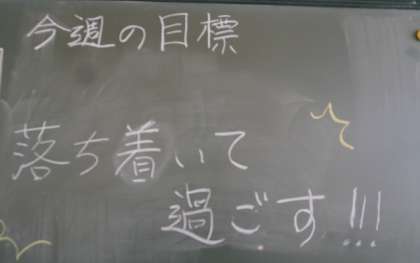 今週の目標
落ち着いて
過ごす!!!